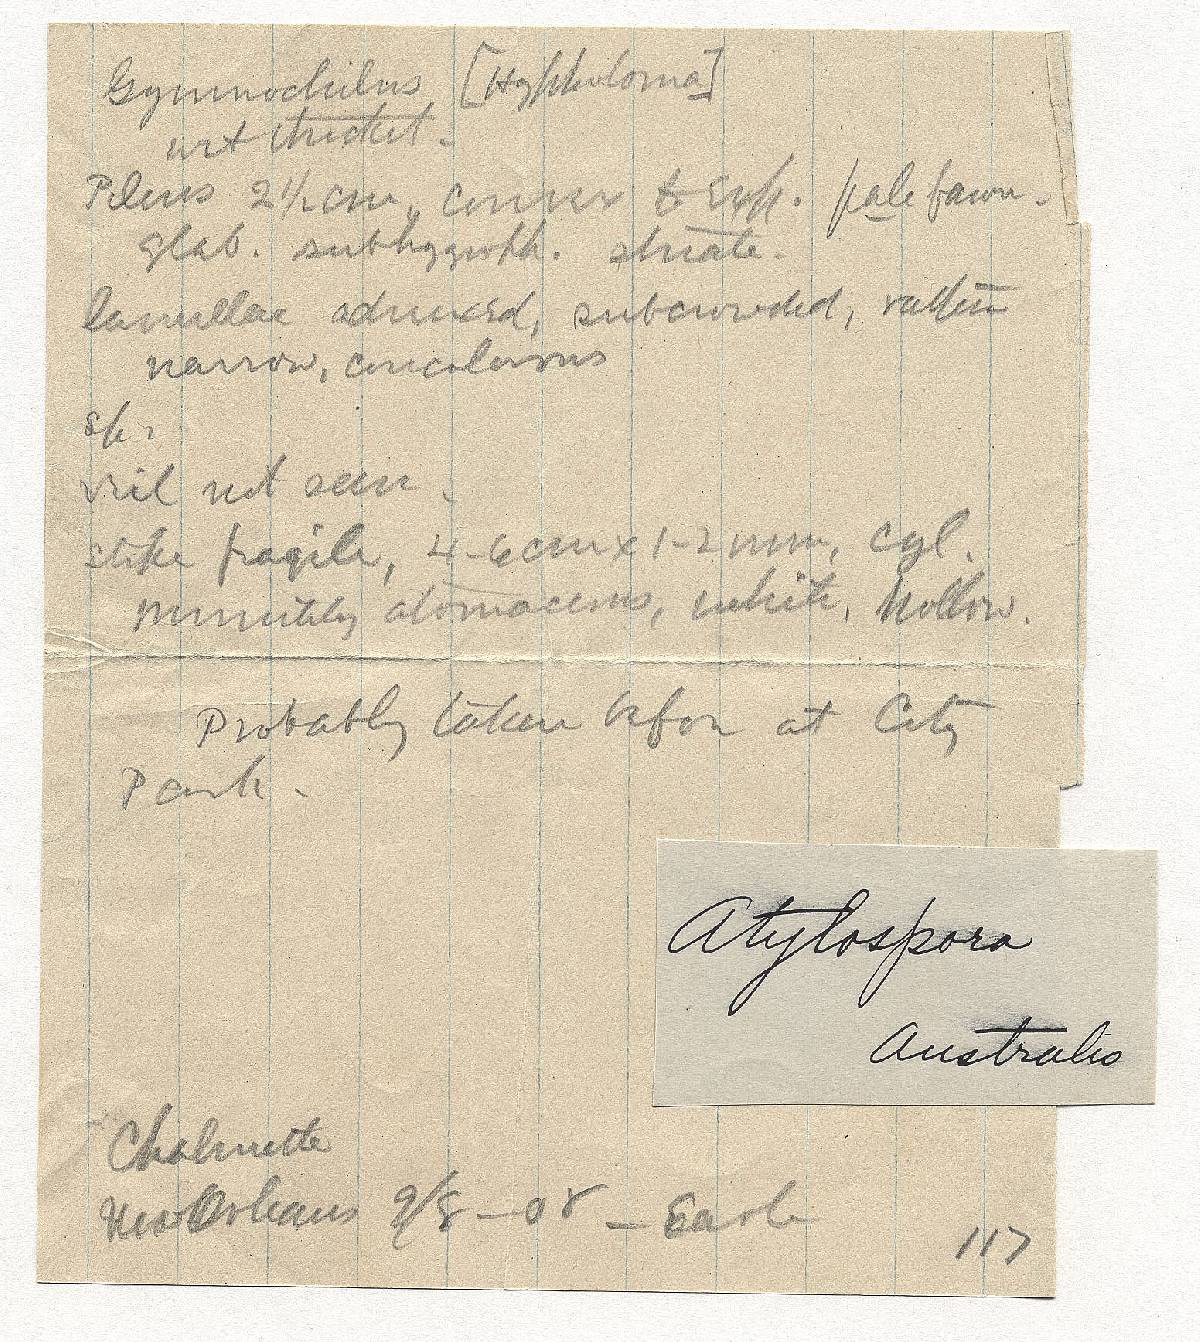 Gymnochilus [Hypholoma]
not
Pileus 2½ cm, convex to exp. pale fawn.
glab. subhygroph. striate.
lamellae adnexed, subcrowded, rather
narrow, concolorous
sp.
veil not seen.
stipe fragile, 4-6 cm x 1-2 mm, cyl.
minutely atomaceous, white, hollow.
Probably taken before at City
Park.
Atylospora
australis
Chalmette
New Orleans 9/8-08 - Earle
117